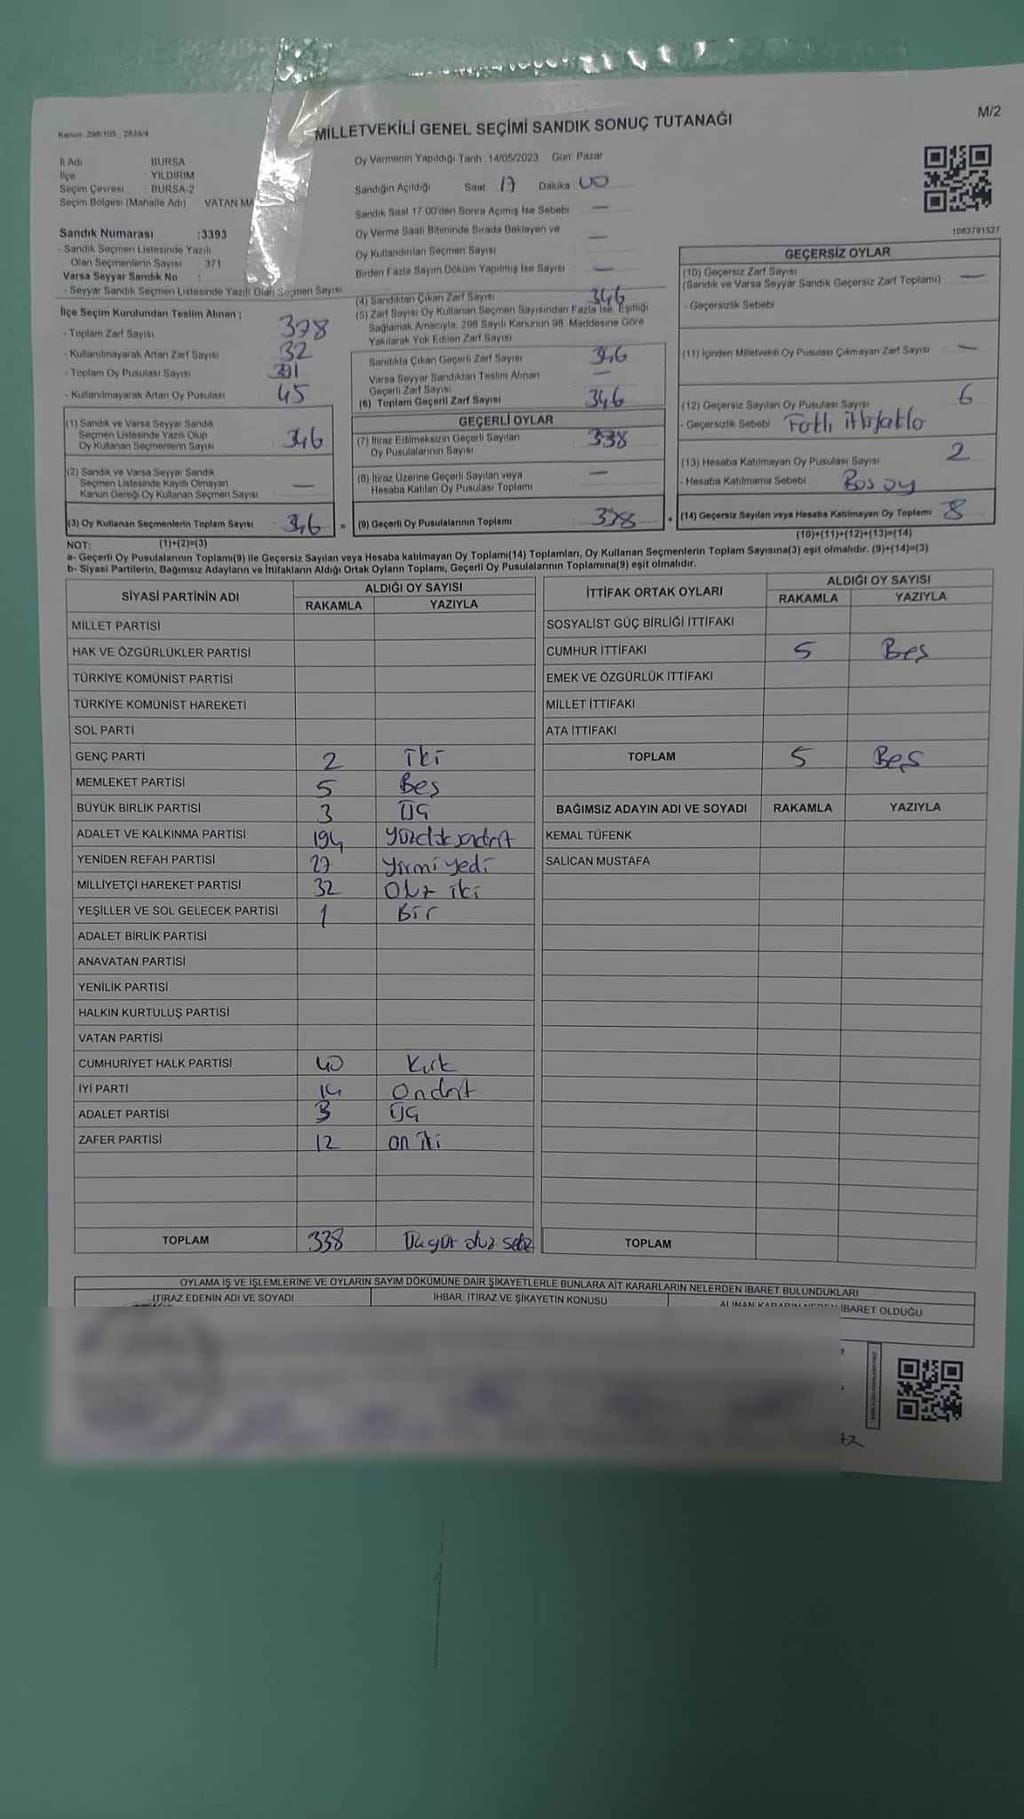 Kanun: 298/105 , 2839/4
M/2
MİLLETVEKİLİ GENEL SEÇİMİ SANDIK SONUÇ TUTANAĞI
İl Adı : BURSA
İlçe : YILDIRIM
Seçim Çevresi : BURSA-2
Seçim Bölgesi (Mahalle Adı) VATAN MA
Sandık Numarası :3393
- Sandık Seçmen Listesinde Yazılı
Olan Seçmenlerin Sayısı : 371
Varsa Seyyar Sandık No :
- Seyyar Sandık Seçmen Listesinde Yazılı Olan Seçmen Sayısı
İlçe Seçim Kurulundan Teslim Alınan ;
- Toplam Zarf Sayısı 378
- Kullanılmayarak Artan Zarf Sayısı 32
- Toplam Oy Pusulası Sayısı 391
- Kullanılmayarak Artan Oy Pusulası 45
(1) Sandık ve Varsa Seyyar Sandık
Seçmen Listesinde Yazılı Olup
Oy Kullanan Seçmenlerin Sayısı 346
(2) Sandık ve Varsa Seyyar Sandık
Seçmen Listesinde Kayıtlı Olmayan
Kanun Gereği Oy Kullanan Seçmen Sayısı —
(3) Oy Kullanan Seçmenlerin Toplam Sayısı 346 =
Oy Vermenin Yapıldığı Tarih :14/05/2023 Gün: Pazar
Sandığın Açıldığı Saat 17 Dakika 00
Sandık Saat 17:00'den Sonra Açılmış İse Sebebi —
Oy Verme Saati Bitiminde Sırada Bekleyen ve
Oy Kullandırılan Seçmen Sayısı —
Birden Fazla Sayım Döküm Yapılmış İse Sayısı —
(4) Sandıktan Çıkan Zarf Sayısı 346
(5) Zarf Sayısı Oy Kullanan Seçmen Sayısından Fazla İse, Eşitliği
Sağlamak Amacıyla, 298 Sayılı Kanunun 98. Maddesine Göre
Yakılarak Yok Edilen Zarf Sayısı
Sandıkta Çıkan Geçerli Zarf Sayısı 346
Varsa Seyyar Sandıktan Teslim Alınan
Geçerli Zarf Sayısı —
(6) Toplam Geçerli Zarf Sayısı 346
GEÇERLİ OYLAR
(7) İtiraz Edilmeksizin Geçerli Sayılan
Oy Pusulalarının Sayısı 338
(8) İtiraz Üzerine Geçerli Sayılan veya
Hesaba Katılan Oy Pusulası Toplamı —
(9) Geçerli Oy Pusulalarının Toplamı 338 +
1063791527
GEÇERSİZ OYLAR
(10) Geçersiz Zarf Sayısı
(Sandık ve Varsa Seyyar Sandık Geçersiz Zarf Toplamı) —
- Geçersizlik Sebebi
(11) İçinden Milletvekili Oy Pusulası Çıkmayan Zarf Sayısı —
(12) Geçersiz Sayılan Oy Pusulası Sayısı 6
- Geçersizlik Sebebi
(13) Hesaba Katılmayan Oy Pusulası Sayısı 2
- Hesaba Katılmama Sebebi Boş oy
(14) Geçersiz Sayılan veya Hesaba Katılmayan Oy Toplamı 8
(10)+(11)+(12)+(13)=(14)
NOT: (1)+(2)=(3)
a- Geçerli Oy Pusulalarının Toplamı(9) ile Geçersiz Sayılan veya Hesaba katılmayan Oy Toplamı(14) Toplamları, Oy Kullanan Seçmenlerin Toplam Sayısına(3) eşit olmalıdır. (9)+(14)=(3)
b- Siyasi Partilerin, Bağımsız Adayların ve İttifakların Aldığı Ortak Oyların Toplamı, Geçerli Oy Pusulalarının Toplamına(9) eşit olmalıdır.
SİYASİ PARTİNİN ADI ALDIĞI OY SAYISI
RAKAMLA YAZIYLA
MİLLET PARTİSİ
HAK VE ÖZGÜRLÜKLER PARTİSİ
TÜRKİYE KOMÜNİST PARTİSİ
TÜRKİYE KOMÜNİST HAREKETİ
SOL PARTİ
GENÇ PARTİ 2 İki
MEMLEKET PARTİSİ 5 Beş
BÜYÜK BİRLİK PARTİSİ 3 Üç
ADALET VE KALKINMA PARTİSİ 194
YENİDEN REFAH PARTİSİ 27 Yirmi yedi
MİLLİYETÇİ HAREKET PARTİSİ 32 Otuz iki
YEŞİLLER VE SOL GELECEK PARTİSİ 1 Bir
ADALET BİRLİK PARTİSİ
ANAVATAN PARTİSİ
YENİLİK PARTİSİ
HALKIN KURTULUŞ PARTİSİ
VATAN PARTİSİ
CUMHURİYET HALK PARTİSİ 40 Kırk
İYİ PARTİ 14 Ondört
ADALET PARTİSİ 3 Üç
ZAFER PARTİSİ 12 on iki
TOPLAM 338
İTTİFAK ORTAK OYLARI ALDIĞI OY SAYISI
RAKAMLA YAZIYLA
SOSYALİST GÜÇ BİRLİĞİ İTTİFAKI
CUMHUR İTTİFAKI 5 Beş
EMEK VE ÖZGÜRLÜK İTTİFAKI
MİLLET İTTİFAKI
ATA İTTİFAKI
TOPLAM 5 Beş
BAĞIMSIZ ADAYIN ADI VE SOYADI RAKAMLA YAZIYLA
KEMAL TÜFENK
SALİCAN MUSTAFA
TOPLAM
OYLAMA İŞ VE İŞLEMLERİNE VE OYLARIN SAYIM DÖKÜMÜNE DAİR ŞİKAYETLERLE BUNLARA AİT KARARLARIN NELERDEN İBARET BULUNDUKLARI
İTİRAZ EDENİN ADI VE SOYADI İHBAR, İTİRAZ VE ŞİKAYETİN KONUSU ALINAN KARARIN NEDEN İBARET OLDUĞU